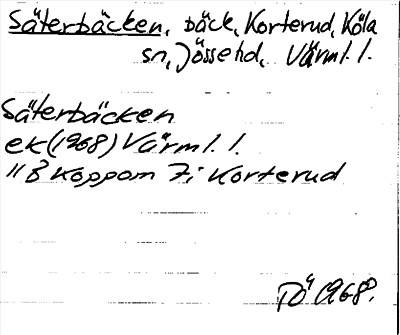 Säterbäcken, bäck, Korterud, Köla
sn, Jösse hd, Värml. l.
Säterbäcken
ek (1968) Värml. l.
11 B Koppom 7 i Korterud
PÖ 1968.